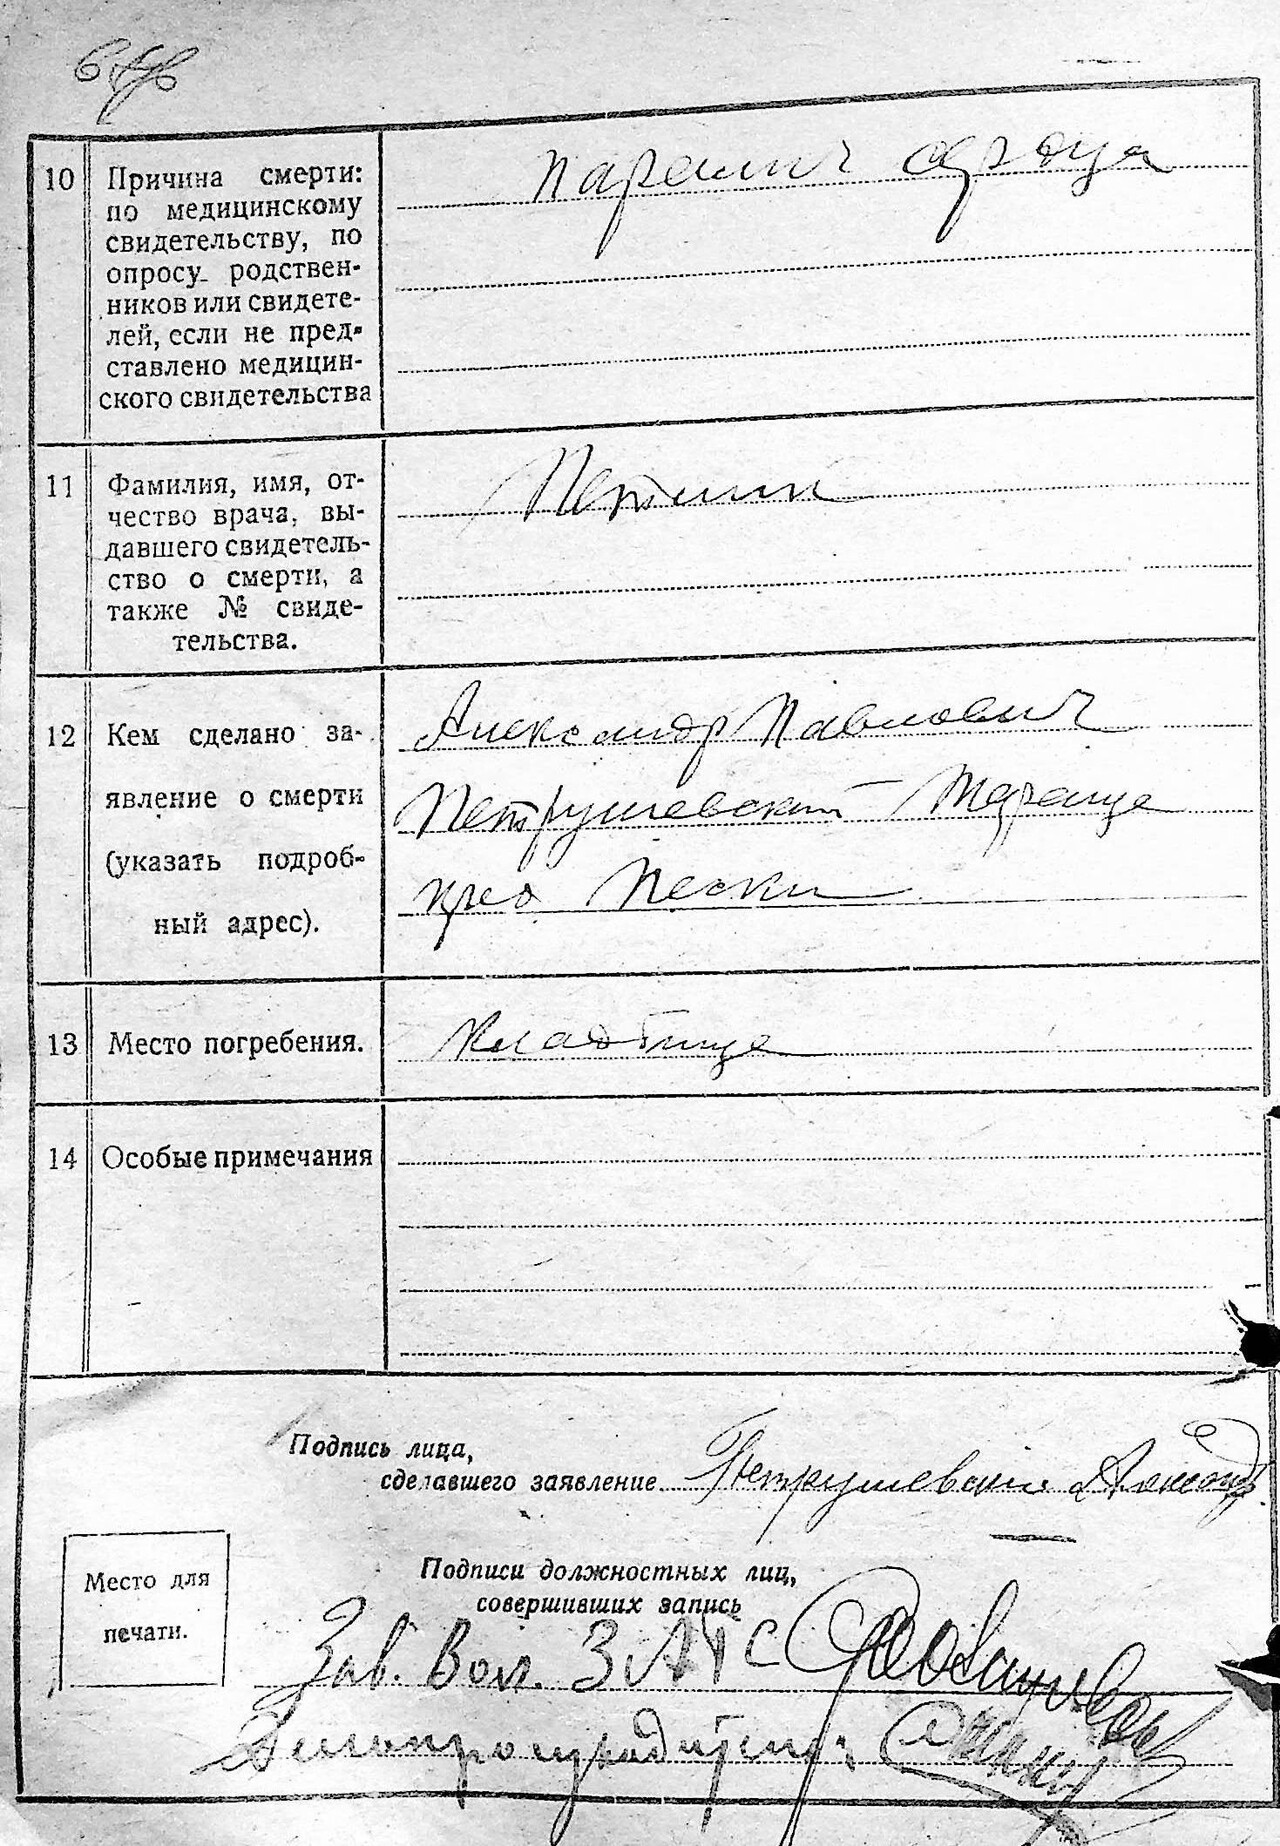 10 Причина смерти:
по медицинскому
свидетельству, по
опросу родствен-
ников или свидете-
лей, если не пред-
ставлено медицин-
ского свидетельства
паралич сердца
11 Фамилия, имя, от-
чество врача, вы-
давшего свидетель-
ство о смерти, а
также № свиде-
тельства.
12 Кем сделано за-
явление о смерти
(указать подроб-
ный адрес).
Александр Павлович
Петрушевский
Пески
13 Место погребения.
Кладбище
14 Особые примечания
Подпись лица,
сделавшего заявление Петрушевский
Подписи должностных лиц,
совершивших запись
Место для
печати.
Зав. Вол. ЗАГС
Делопроизводитель